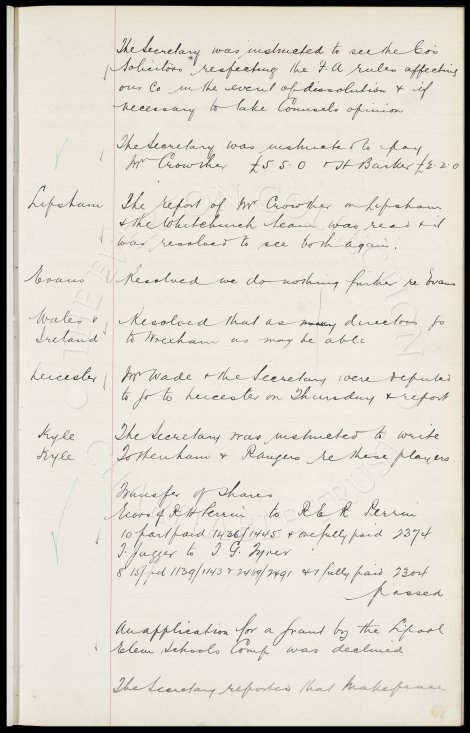 The Secretary was instructed to see the Co's
Solicitors respecting the F.A rules affecting
our Co in the event of dissolution & if
necessary to take Counsels opinion
The Secretary was instructed to pay
Mr Crowther £5.5.0 & H Barker £2.2.0
Lipsham The report of Mr Crowther on Lipsham
& the Whitchurch team was read & it
was resolved to see both again.
Evans Resolved we do nothing further re Evans
Wales v Resolved that as many directors go
Ireland to Wrexham as may be able
Leicester Mr Wade & the Secretary were deputed
to go to Leicester on Thursday & report
Kyle The Secretary was instructed to write
Kyle Tottenham & Rangers re these players
Transfer of Shares
Exors of R H Perrin to R E R Perrin
10 part paid 1436/1445 & fully paid 2374
T. Jagger to T G
8 15/ pd 1139/1143 & 2489/2491 & 1 fully paid 2304
passed
An application for a grant by the L'pool
Elem Schools Comp was declined
The Secretary reported that Makepeace